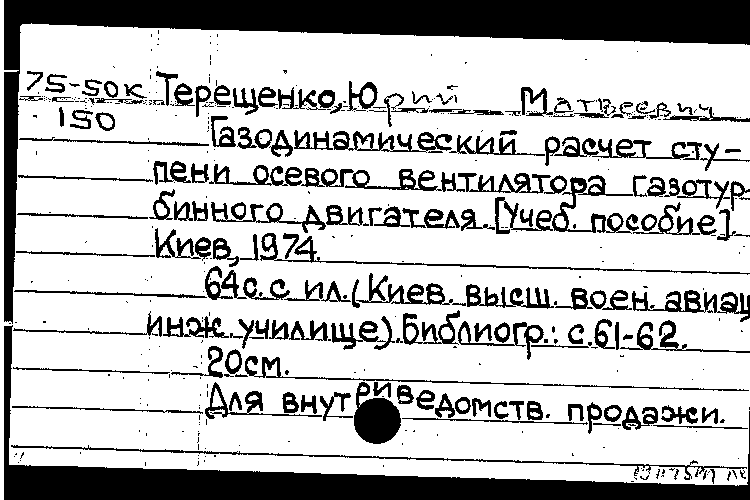 75-50к Терещенко, Юрий Матвеевич
150
Газодинамический расчет сту-
пени осевого вентилятора газотур-
бинного двигателя. [Учеб. пособие].
Киев, 1974.
64 с. с ил. (Киев. высш. воен. авиац
инж. училище). Библиогр.: с. 61-62.
20см.
Для внутриведомств. продажи.